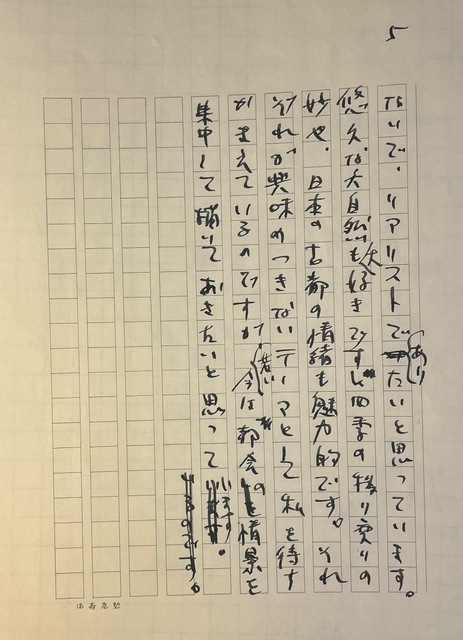 5
ないで、リアリストでありたいと思っています。
悠久な大自然も大好きですし四季の移り変りの
妙や、日本の古都の情緒も魅力的です。それ
ぞれが興味のつきないテーマとして私を待ち
かまえているのですが、若い今は都会の情景を
集中して描いておきたいと思っています。